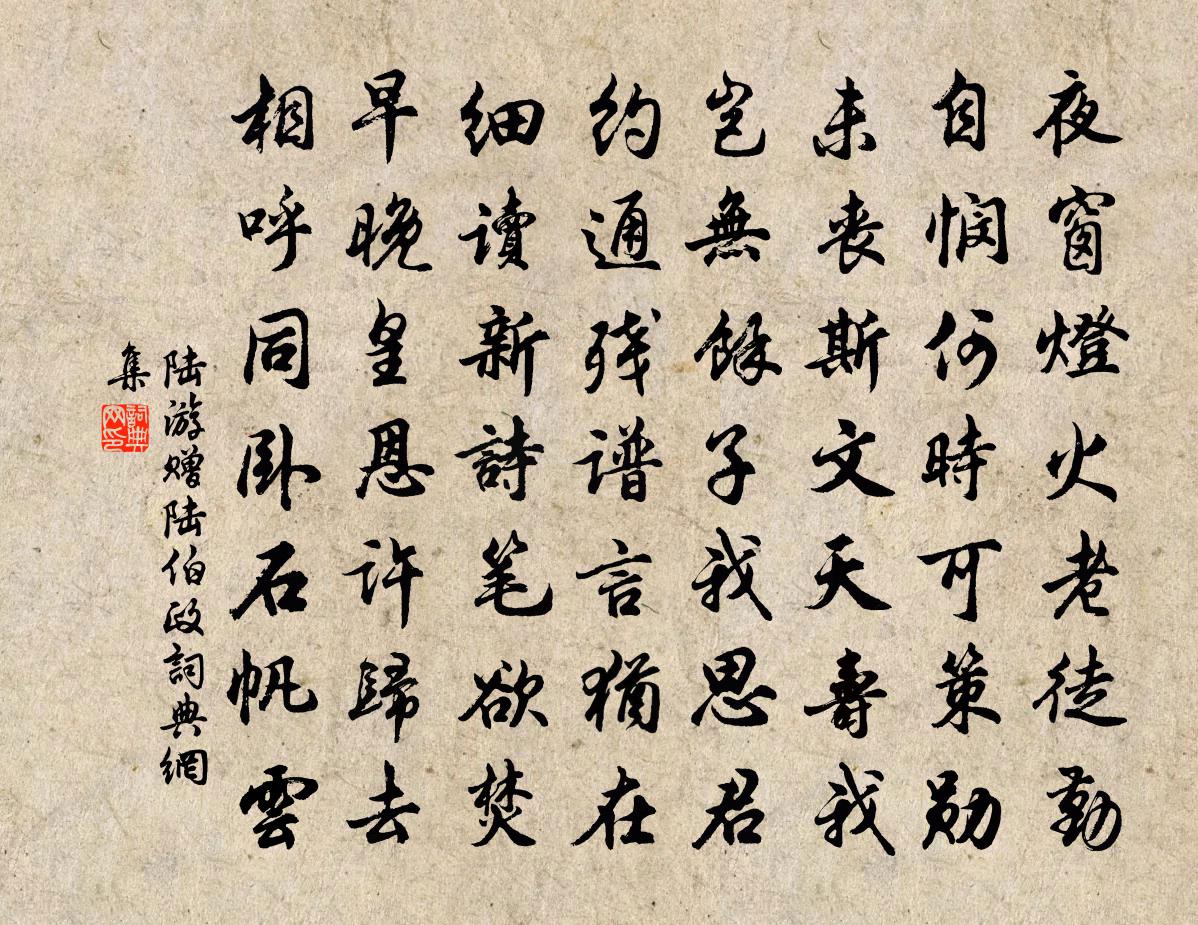 夜窗燈火老徒勤
自悯何時可策勋
未丧斯文天壽我
岂無餘子我思君
約通残谱言猶在
细讀新詩笔欲焚
早晚皇恩许歸去
相呼同卧石帆雲
陆游赠陆伯政詞典網
集
詞典
网印